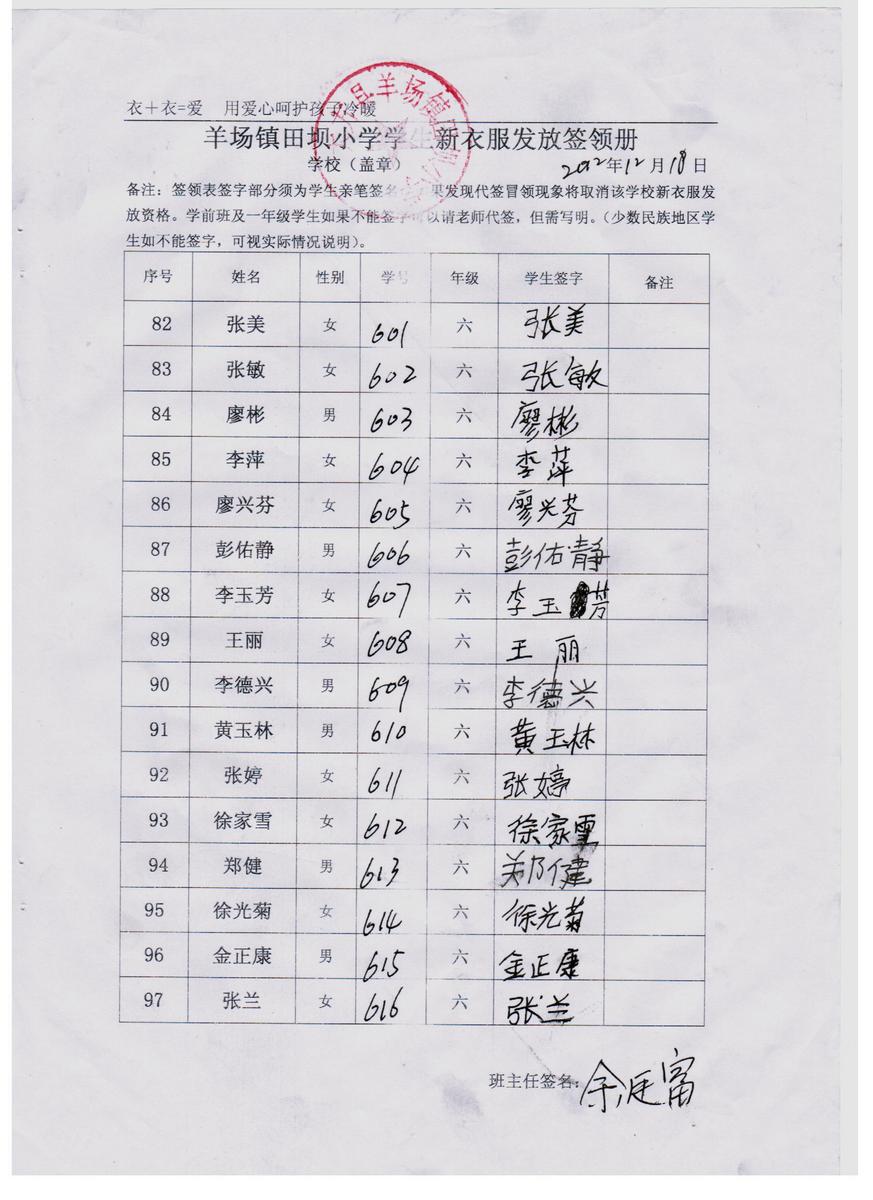 衣+衣=爱 用爱心呵护孩子冷暖
羊场镇田坝小学学生新衣服发放签领册
学校（盖章） 2012年12月18日
备注：签领表签字部分须为学生亲笔签名 果发现代签冒领现象将取消该学校新衣服发
放资格。学前班及一年级学生如果不能签字可以请老师代签，但需写明。（少数民族地区学
生如不能签字，可视实际情况说明）。
序号 姓名 性别 学号 年级 学生签字 备注
82 张美 女 601 六 张美
83 张敏 女 602 六 张敏
84 廖彬 男 603 六 廖彬
85 李萍 女 604 六 李萍
86 廖兴芬 女 605 六 廖兴芬
87 彭佑静 男 606 六 彭佑静
88 李玉芳 女 607 六 李玉芳
89 王丽 女 608 六 王丽
90 李德兴 男 609 六 李德兴
91 黄玉林 男 610 六 黄玉林
92 张婷 女 611 六 张婷
93 徐家雪 女 612 六 徐家雪
94 郑健 男 613 六 郑健
95 徐光菊 女 614 六 徐光菊
96 金正康 男 615 六 金正康
97 张兰 女 616 六 张兰
班主任签名：余廷富
县羊场镇